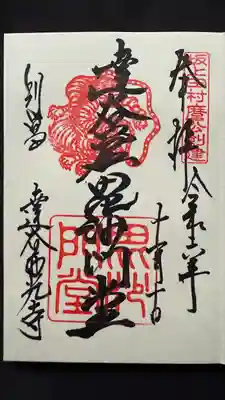 坂上田村麿公創建
奉拝 令和
達谷窟毘沙門堂
毘沙門堂
別當
達谷西光寺